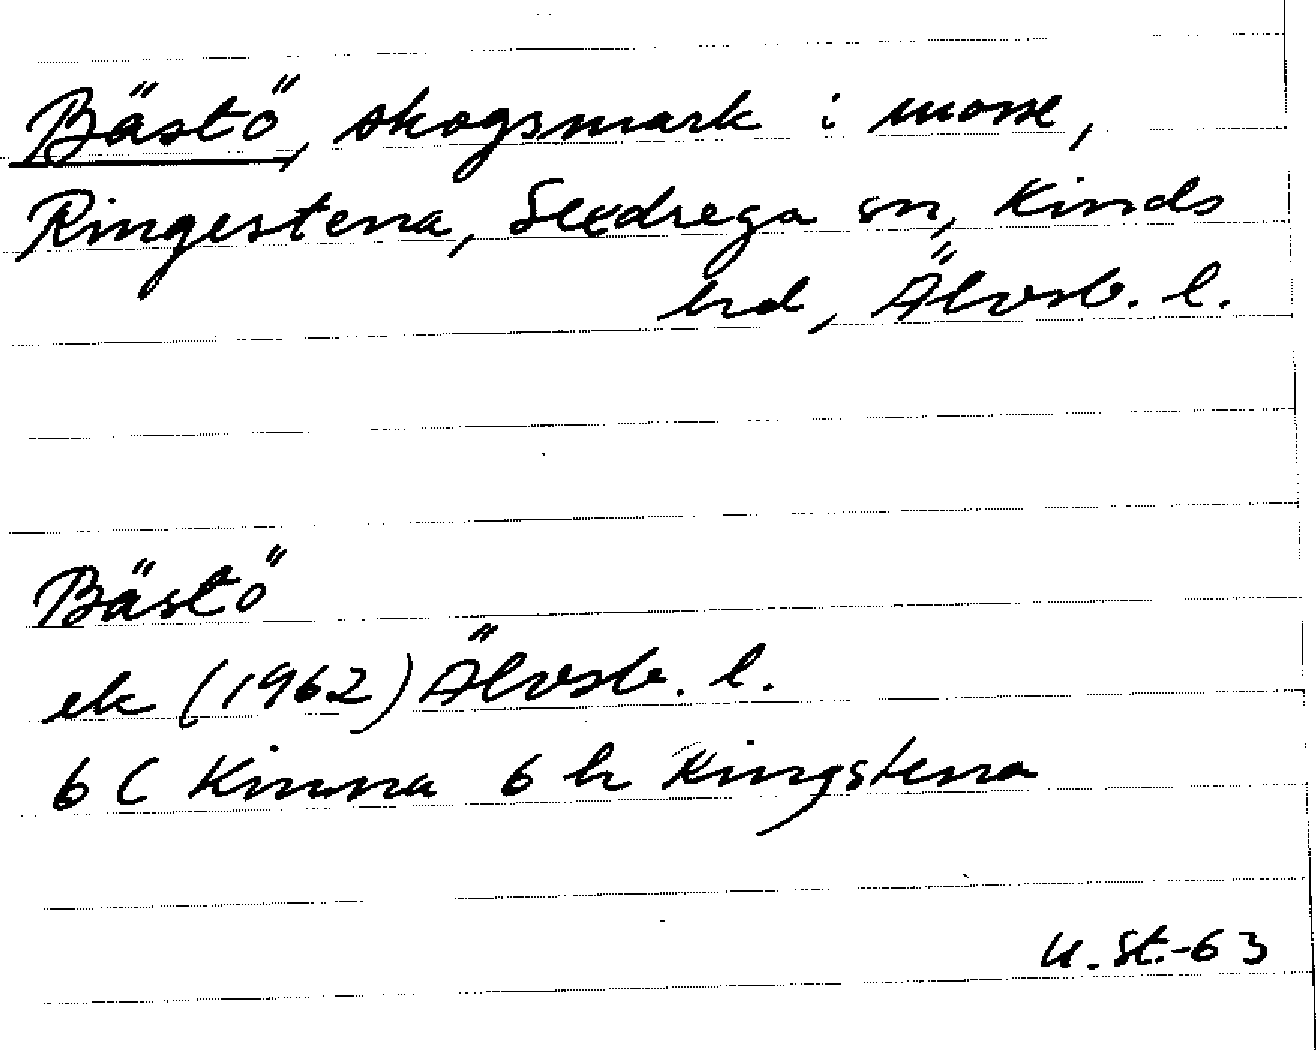 Bästö, skogsmark i mosse,
Ringestena, Sexdrega sn, Kinds
hrd, Älvsb. l.
Bästö
ek (1962) Älvsb. l.
6 C Kinna 6 h Kingstena
U. St.-63